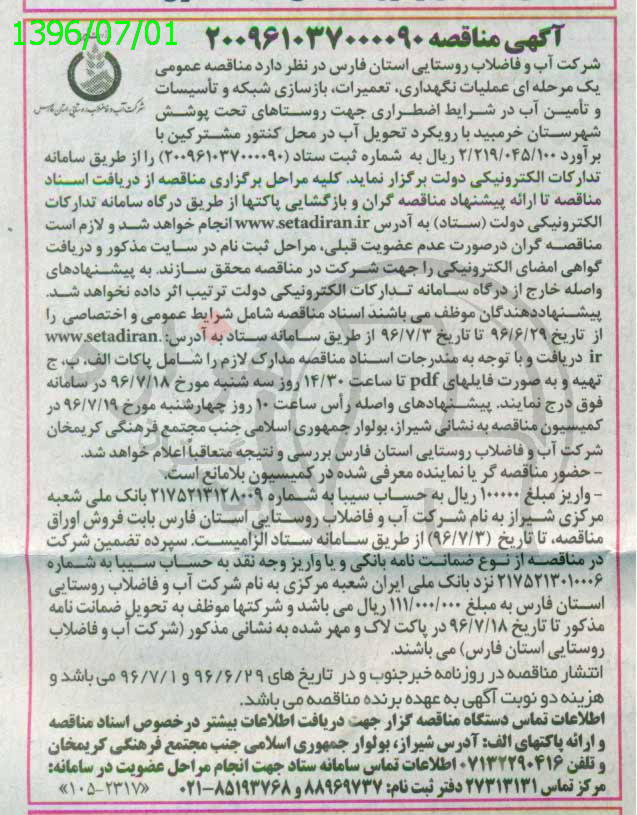 1396/07/01
آگهی مناقصه ۲۰۰۹۶۱۰۳۷۰۰۰۰۹۰
شرکت آب و فاضلاب روستایی استان فارس
شرکت آب و فاضلاب روستایی استان فارس در نظر دارد مناقصه عمومی
یک مرحله ای عملیات نگهداری، تعمیرات، بازسازی شبکه و تأسیسات
و تأمین آب در شرایط اضطراری جهت روستاهای تحت پوشش
شهرستان خرمبید با رویکرد تحویل آب در محل کنتور مشترکین با
برآورد ۲/۲۱۹/۰۴۵/۱۰۰ ریال به شماره ثبت ستاد (۲۰۰۹۶۱۰۳۷۰۰۰۰۹۰) را از طریق سامانه
تدارکات الکترونیکی دولت برگزار نماید. کلیه مراحل برگزاری مناقصه از دریافت اسناد
مناقصه تا ارائه پیشنهاد مناقصه گران و بازگشایی پاکتها از طریق درگاه سامانه تدارکات
الکترونیکی دولت (ستاد) به آدرس www.setadiran.ir انجام خواهد شد و لازم است
مناقصه گران درصورت عدم عضویت قبلی، مراحل ثبت نام در سایت مذکور و دریافت
گواهی امضای الکترونیکی را جهت شرکت در مناقصه محقق سازند. به پیشنهادهای
واصله خارج از درگاه سامانه تدارکات الکترونیکی دولت ترتیب اثر داده نخواهد شد.
پیشنهاددهندگان موظف می باشند اسناد مناقصه شامل شرایط عمومی و اختصاصی را
از تاریخ ۹۶/۶/۲۹ تا تاریخ ۹۶/۷/۳ از طریق سامانه ستاد به آدرس: www.setadiran.
ir دریافت و با توجه به مندرجات اسناد مناقصه مدارک لازم را شامل پاکات الف، ب، ج
تهیه و به صورت فایلهای pdf تا ساعت ۱۴/۳۰ روز سه شنبه مورخ ۹۶/۷/۱۸ در سامانه
فوق درج نمایند. پیشنهادهای واصله رأس ساعت ۱۰ روز چهارشنبه مورخ ۹۶/۷/۱۹ در
کمیسیون مناقصه به نشانی شیراز، بولوار جمهوری اسلامی جنب مجتمع فرهنگی کریمخان
شرکت آب و فاضلاب روستایی استان فارس بررسی و نتیجه متعاقباً اعلام خواهد شد.
- حضور مناقصه گر یا نماینده معرفی شده در کمیسیون بلامانع است.
- واریز مبلغ ۱۰۰۰۰۰ ریال به حساب سیبا به شماره ۲۱۷۵۲۱۳۱۲۸۰۰۹ بانک ملی شعبه
مرکزی شیراز به نام شرکت آب و فاضلاب روستایی استان فارس بابت فروش اوراق
مناقصه، تا تاریخ (۹۶/۷/۳) از طریق سامانه ستاد الزامیست. سپرده تضمین شرکت
در مناقصه از نوع ضمانت نامه بانکی و یا واریز وجه نقد به حساب سیبا به شماره
۲۱۷۵۲۱۳۰۱۰۰۰۶ نزد بانک ملی ایران شعبه مرکزی به نام شرکت آب و فاضلاب روستایی
استان فارس به مبلغ ۱۱۱/۰۰۰/۰۰۰ ریال می باشد و شرکتها موظف به تحویل ضمانت نامه
مذکور تا تاریخ ۹۶/۷/۱۸ در پاکت لاک و مهر شده به نشانی مذکور (شرکت آب و فاضلاب
روستایی استان فارس) می باشند.
انتشار مناقصه در روزنامه خبرجنوب و در تاریخ های ۹۶/۶/۲۹ و ۹۶/۷/۱ می باشد و
هزینه دو نوبت آگهی به عهده برنده مناقصه می باشد.
اطلاعات تماس دستگاه مناقصه گزار جهت دریافت اطلاعات بیشتر درخصوص اسناد مناقصه
و ارائه پاکتهای الف: آدرس شیراز، بولوار جمهوری اسلامی جنب مجتمع فرهنگی کریمخان
و تلفن ۰۷۱۳۲۲۹۰۴۱۶ اطلاعات تماس سامانه ستاد جهت انجام مراحل عضویت در سامانه:
مرکز تماس ۲۷۳۱۳۱۳۱ دفتر ثبت نام: ۸۸۹۶۹۷۳۷ و ۸۵۱۹۳۷۶۸-۰۲۱ «۱۰۵-۲۳۱۷»